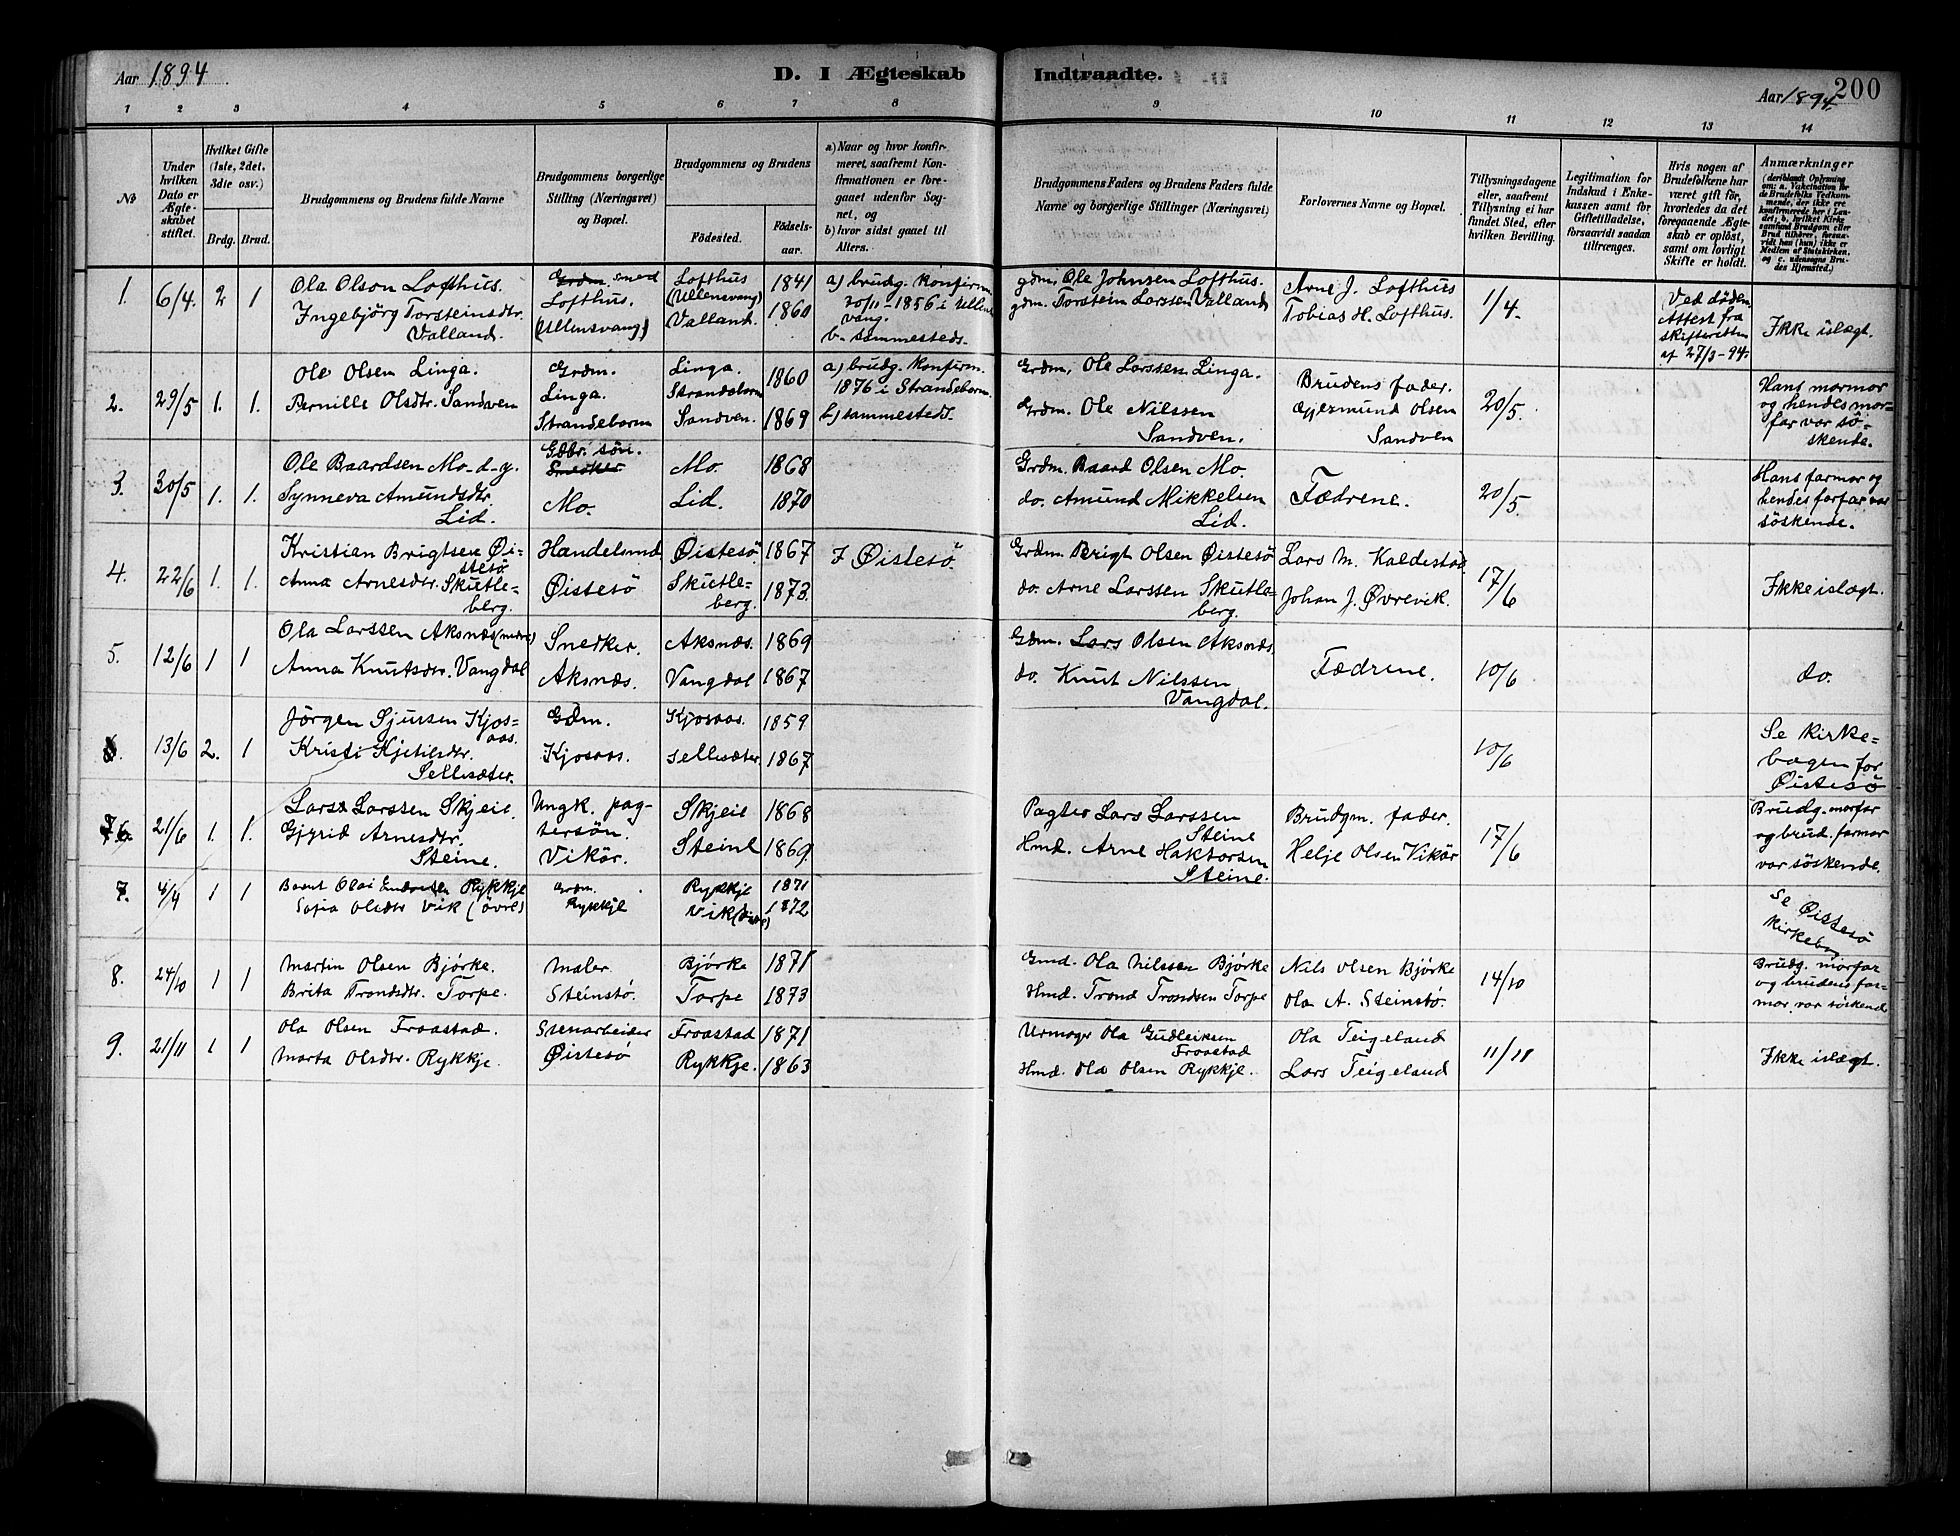 Aar 1894
D. I Ægteskab
Indtraadte.
Aar 1894.
200
1 2 3 4 5 6 7 8
9 10 11 12 13 14
No
Under hvilken Dato er Ægteskabet stiftet.
Hvilket Gifte (1ste, 2det, 3die osv.)
Brdg. Brud.
Brudgommens og Brudens fulde Navne
Brudgommens borgerlige Stilling (Næringsvei) og Bopæl.
Brudgommens og Brudens
Födested.
Födsels-aar.
a) Naar og hvor konfirmeret, saafremt Konfirmationen er foregaaet udenfor Sognet, og
b) hvor sidst gaaet til Alters.
Brudgommens Faders og Brudens Faders fulde Navne og borgerlige Stillinger (Næringsvei)
Forlovernes Navne og Bopæl.
Tillysningsdagene eller, saafremt Tillysning ei har fundet Sted, efter hvilken Bevilling.
Legitimation for Indskud i Enkekassen samt for Giftetilladelse, forsaavidt saadan tiltrænges.
Hvis nogen af Brudefolkene har været gift før, hvorledes da det foregaaende Ægteskab er opløst, samt om lovligt Skifte er holdt.
Anmærkninger
(deriblandt Oplysning om: a. Vakcination for de Brudefolks Vedkommende, der ikke ere konfirmerede her i Landet; b. hvilket Kirkesamfund Brudgom eller Brud tilhörer, forsaavidt han (hun) ikke er Medlem af Statskirken, og c. udensogns Brudes Hjemsted.)
1. 6/4. 2 1
Ola Olson Lofthus.
Ingebjörg Torsteinsdtr.
Valland.
Grdm. smed
Lofthus.
(Ullensvang)
Lofthus
(Ullensvang)
Valland.
1841
1860
a) brudg. konfirm.
20/11 - 1856 i Ullens
vang.
b- sammesteds.
gdm. Ole Johnsen Lofthus.
gdm. Torstein Larssen Valland
Arne J. Lofthus
Tobias H. Lofthus.
1/4.
Ved döden
Attest fra
skifteretten
af 27/3-94.
Ikke islægt.
2. 29/5 1. 1.
Ole Olsen Linga.
Pernille Olsdtr. Sandven
Grdm.
Linga.
Strandebarm
Linga.
Strandebarm
Sandven.
1860
1869
a) brudg. konfirm.
1876 i Strandebarm.
b) sammesteds.
Grdm. Ole Larssen Linga.
Grdm. Ole Nilssen
Sandven.
Brudens fader.
Gjermund Olsen
Sandven
20/5.
Hans mormor
og hendes mor-
far var sö-
skende.
3. 30/5 1. 1.
Ole Baardsen Mo-d-y.
Synneva Amundsdtr.
Lid.
Gdbr. sön.
Snedker
Mo.
Mo.
Lid.
1868
1870
Grdm. Baard Olsen Mo.
do. Amund Mikkelsen
Lid.
Fædrene.
20/5.
Hans farmor og
hendes farfar var
söskende.
4. 22/6 1. 1.
Kristian Brigtsen Øi-
stesö
Anna Arnesdtr. Skutle-
berg.
Handelsmd
Øistesö
Øistesö
Skutle-
berg.
1867
1873.
I Øistesö.
Grdm. Brigt Olsen Øistesö
do. Arne Larssen Skutle-
berg.
Lars M. Kaldestad.
Johan J. Øvrevik.
17/6
Ikke islægt.
5. 12/6 1 1
Ola Larssen Aksnæs (nedre)
Anna Knutsdtr. Vangdal
Snedker.
Aksnæs.
Aksnæs.
Vangdal
1869
1867
Gdm. Lars Olsen Aksnæs
do. Knut Nilssen
Vangdal.
Fædrene.
10/6
do.
6 13/6 2. 1
Jörgen Sjursen Kjos-
aas.
Kristi Kjetilsdtr.
Sellesæter.
Gdm.
Kjosaas.
Kjosaas.
Sellesæter.
1859
1867
10/6
Se kirke-
bogen for
Øistesö
6. 21/6 1. 1.
Lars Larssen Skjeie.
Gjyrid Arnesdtr.
Steine.
Ungk. pag-
tersön.
Vikör.
Skjeie
Steine
1868
1869.
Pagter Lars Larssen
Steine
Hmd. Arne Haktorsen
Steine.
Brudgm. fader.
Helje Olsen Vikör
17/6
Brudg. morfar
og brud. farmor
var söskende.
7. 4/4 1 1
Olai Rykkje
Sofia Olsdtr Vik (övre)
Grdm.
Rykkje
Rykkje
Vik
1871
1872
Se Øistesö
kirkebog
8. 24/10 1 1
Martin Olsen Björke.
Brita Trondsdtr. Torpe.
Maler.
Steinstö.
Björke
Torpe
1871
1873
Gmd. Ola Nilssen Björke
Hmd. Trond Trondsen Torpe
Nils Olsen Björke
Ola A. Steinstö.
14/10
Brudg. morfar
og brudens far-
mor var söskend
9. 21/11 1 1
Ola Olsen Froastad.
Marta Olsdtr. Rykkje.
Stenarbeider
Øistesö
Froastad
Rykkje.
1871
1863
Urmager Ola Gudleiksen
Froastad
Hmd. Ola Olsen Rykkje.
Ola Teigeland
Lars Teigeland
11/11
Ikke islægt.